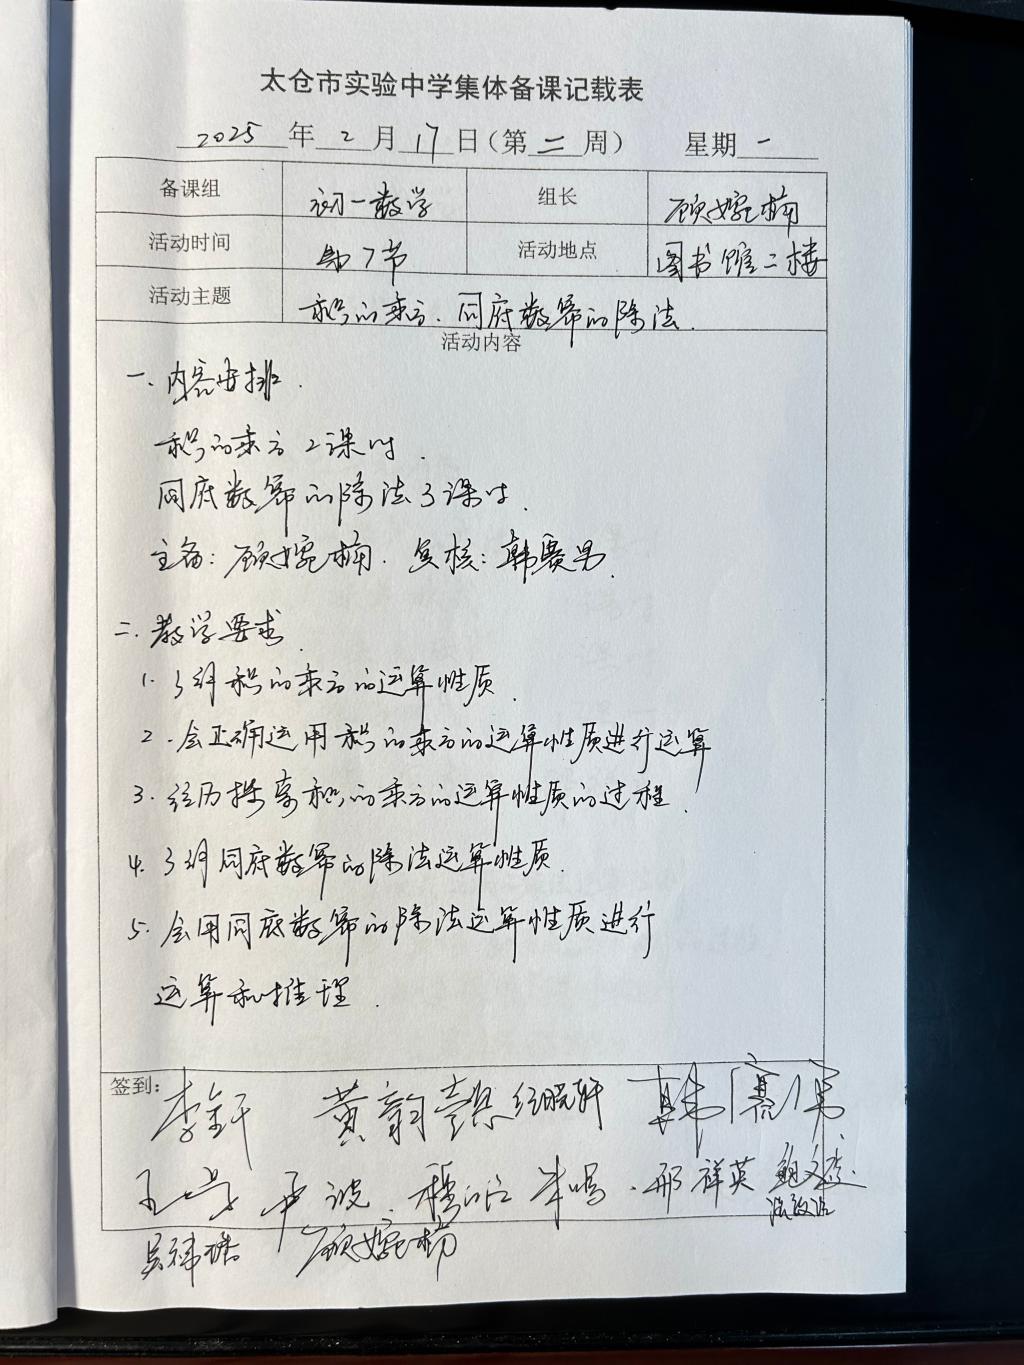 太仓市实验中学集体备课记载表
2025年2月17日（第二周） 星期一
备课组 初一数学 组长 顾婉楠
活动时间 第7节 活动地点 图书馆二楼
活动主题 积的乘方.同底数幂的除法.
活动内容
一.内容安排.
积的乘方2课时.
同底数幂的除法3课时.
主备:顾婉楠. 复核:韩赛男.
二.教学要求.
1.了解积的乘方的运算性质.
2.会正确运用积的乘方的运算性质进行运算
3.经历探索积的乘方的运算性质的过程.
4.了解同底数幂的除法运算性质.
5.会用同底数幂的除法运算性质进行
运算和推理.
签到: 李 黄韵 韩
尹波 邢祥英
顾婉楠